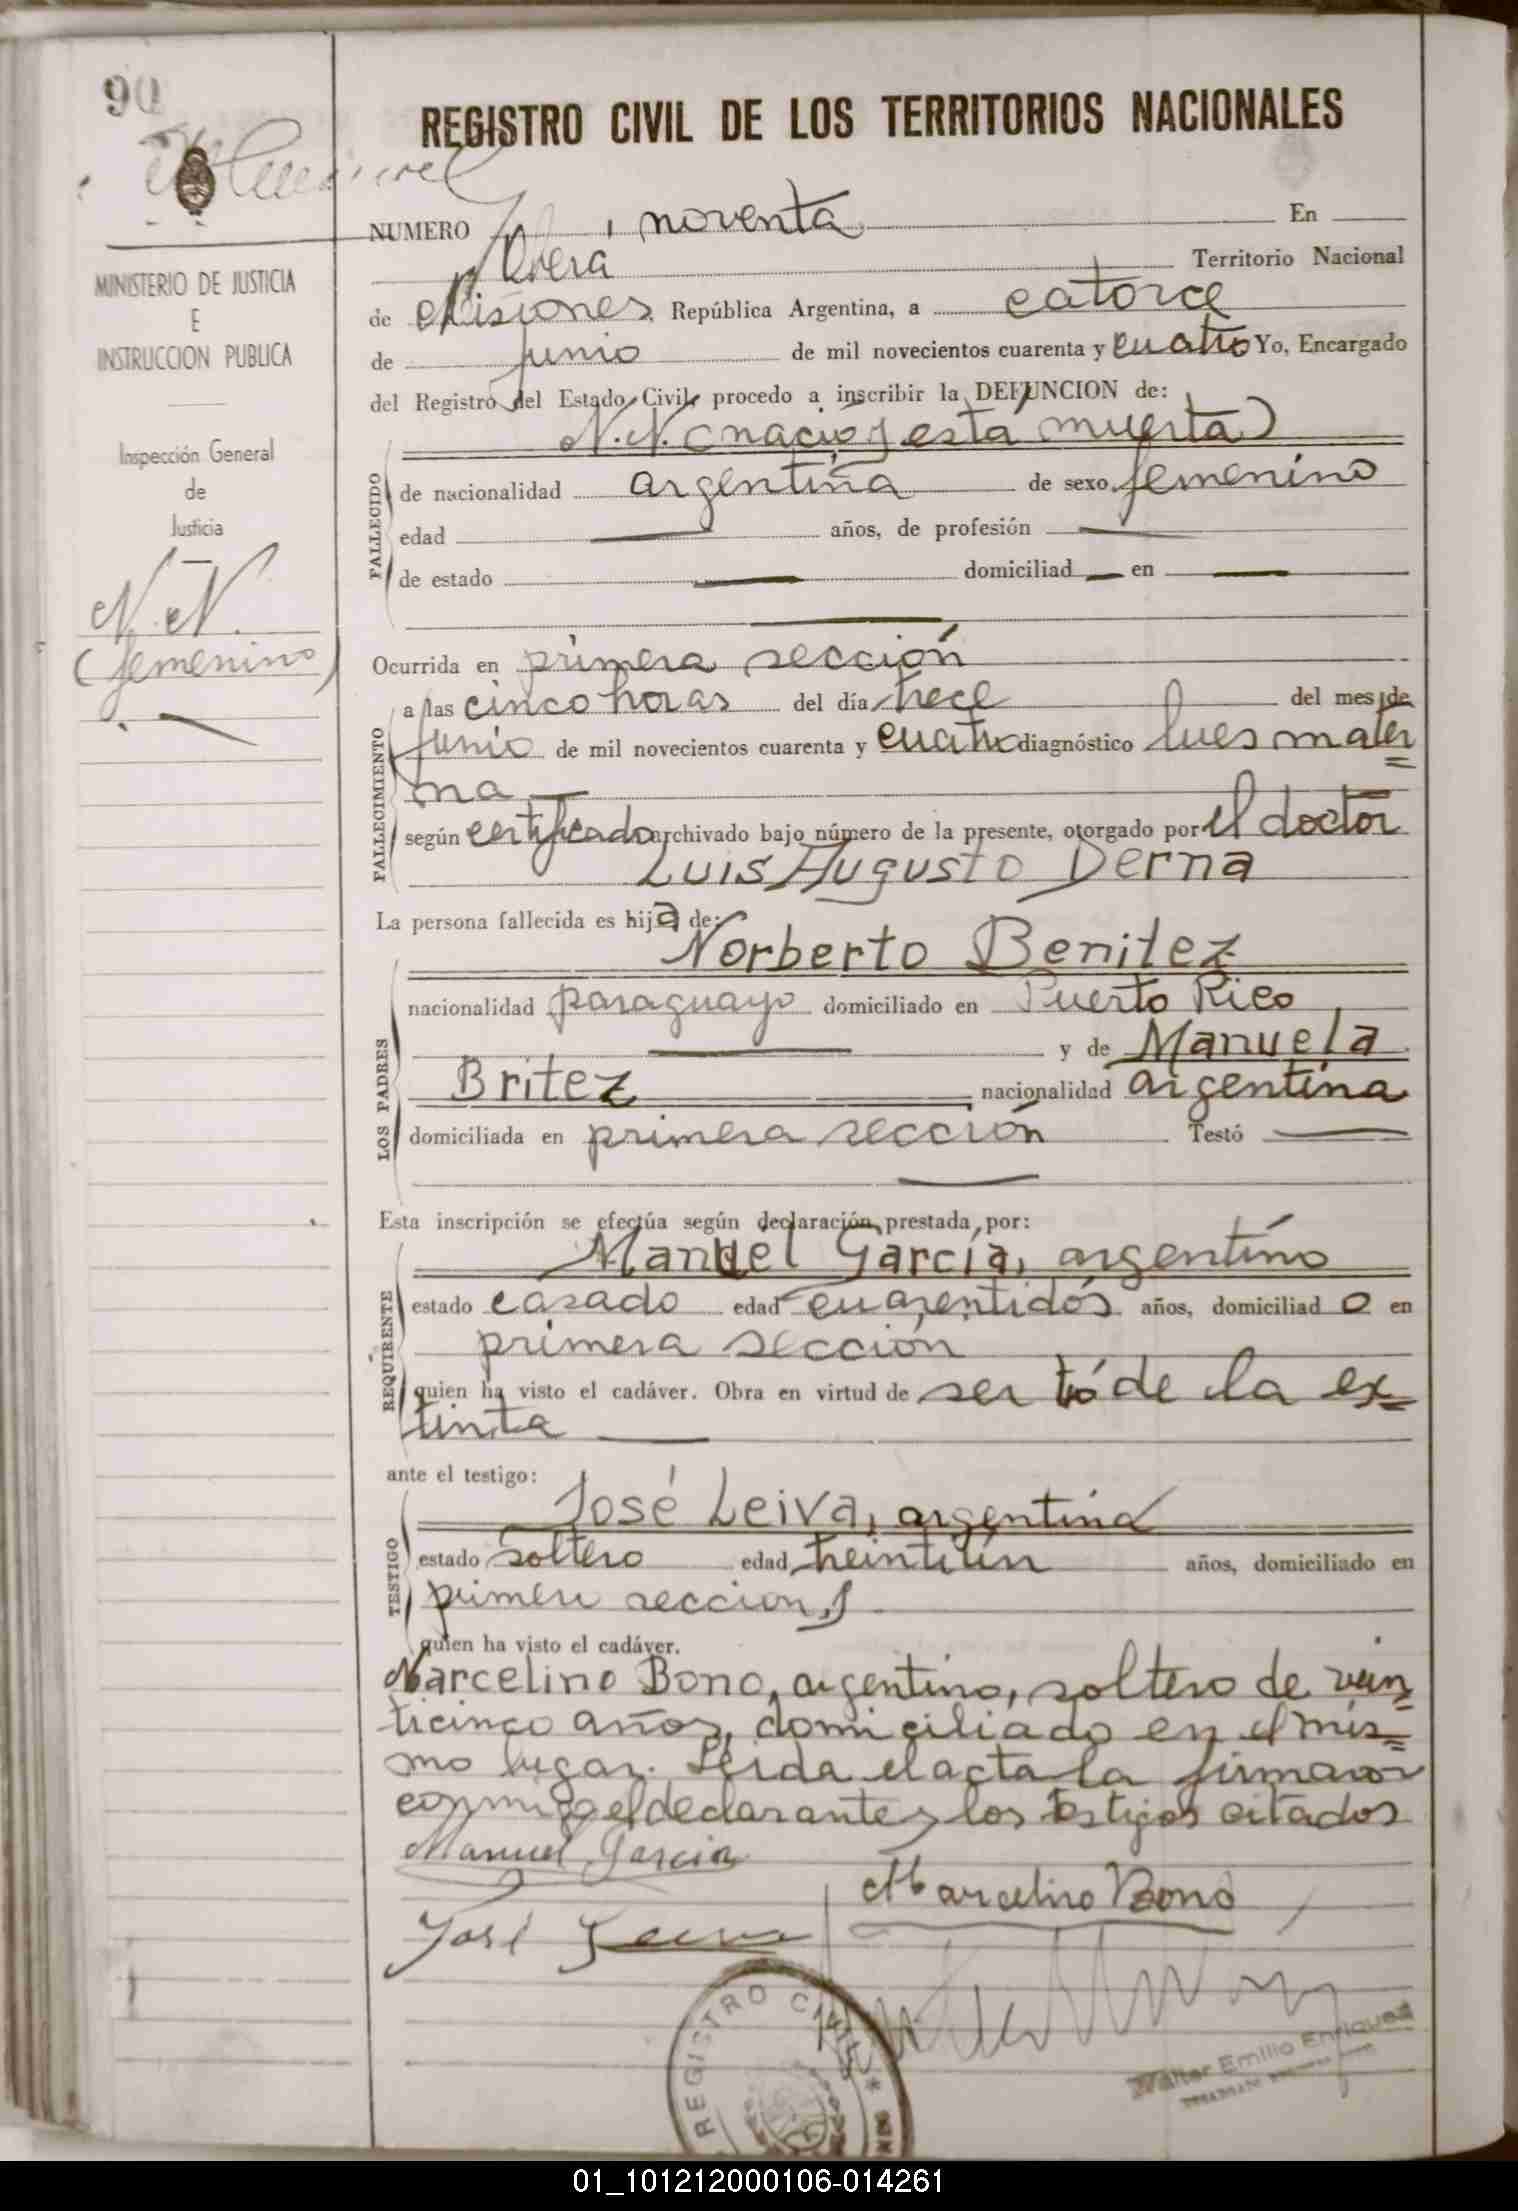 90
REGISTRO CIVIL DE LOS TERRITORIOS NACIONALES
NUMERO noventa En
Overá Territorio Nacional
de Misiones, República Argentina, a catorce
de junio de mil novecientos cuarenta y cuatro Yo, Encargado
del Registro del Estado Civil, procedo a inscribir la DEFUNCION de:
N.N. (nació y está muerta)
FALLECIDO
de nacionalidad argentina de sexo femenino
edad años, de profesión
de estado domiciliad en
Ocurrida en primera sección
a las cinco horas del día trece del mes de
FALLECIMIENTO
junio de mil novecientos cuarenta y cuatro diagnóstico lues mater=
na
según certificado archivado bajo número de la presente, otorgado por el doctor
Luis Augusto Derna
La persona fallecida es hija de:
Norberto Benitez
LOS PADRES
nacionalidad paraguayo domiciliado en Puerto Rico
y de Manuela
Britez nacionalidad argentina
domiciliada en primera sección Testó
Esta inscripción se efectúa según declaración prestada por:
Manuel García, argentino
REQUIRENTE
estado casado edad cuarentidós años, domiciliad o en
primera sección
quien ha visto el cadáver. Obra en virtud de ser tío de la ex=
tinta
ante el testigo:
José Leiva, argentino
TESTIGO
estado soltero edad treintiún años, domiciliado en
primera seccion, y
quien ha visto el cadáver.
Marcelino Bono, argentino, soltero de vein=
ticinco años, domiciliado en el mis=
mo lugar. Leida el acta la firmaron
conmigo el declarante y los testigos citados
Manuel Garcia
Marcelino Bono
José Leiva
REGISTRO CIVIL
Walter Emilio Enriquez
MINISTERIO DE JUSTICIA
E
INSTRUCCION PUBLICA
Inspección General
de
Justicia
N.N.
(femenino)
01_101212000106-014261